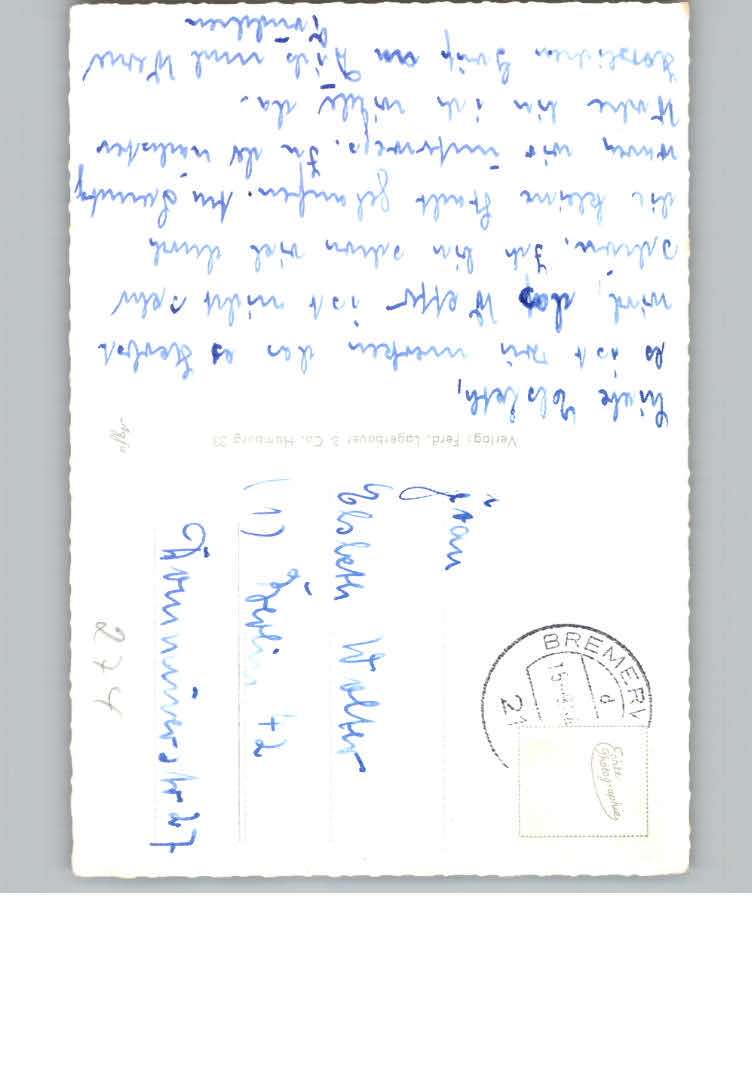 Liebe Elsbeth,
es ist zu merken das es Herbst
wird, das Wetter ist nicht sehr
schön. Ich bin schon viel durch
die kleine Stadt gelaufen. Am Sonntag
waren wir unterwegs. In der nächsten
Woche bin ich wieder da.
Herzlichen Gruß an Dich und
Verlag: Ferd. Lagerbauer & Co. Hamburg 33
Frau
Elsbeth Wolter
(1) Berlin 42
27
274
BREMERV
d
21
Echte
Photographie